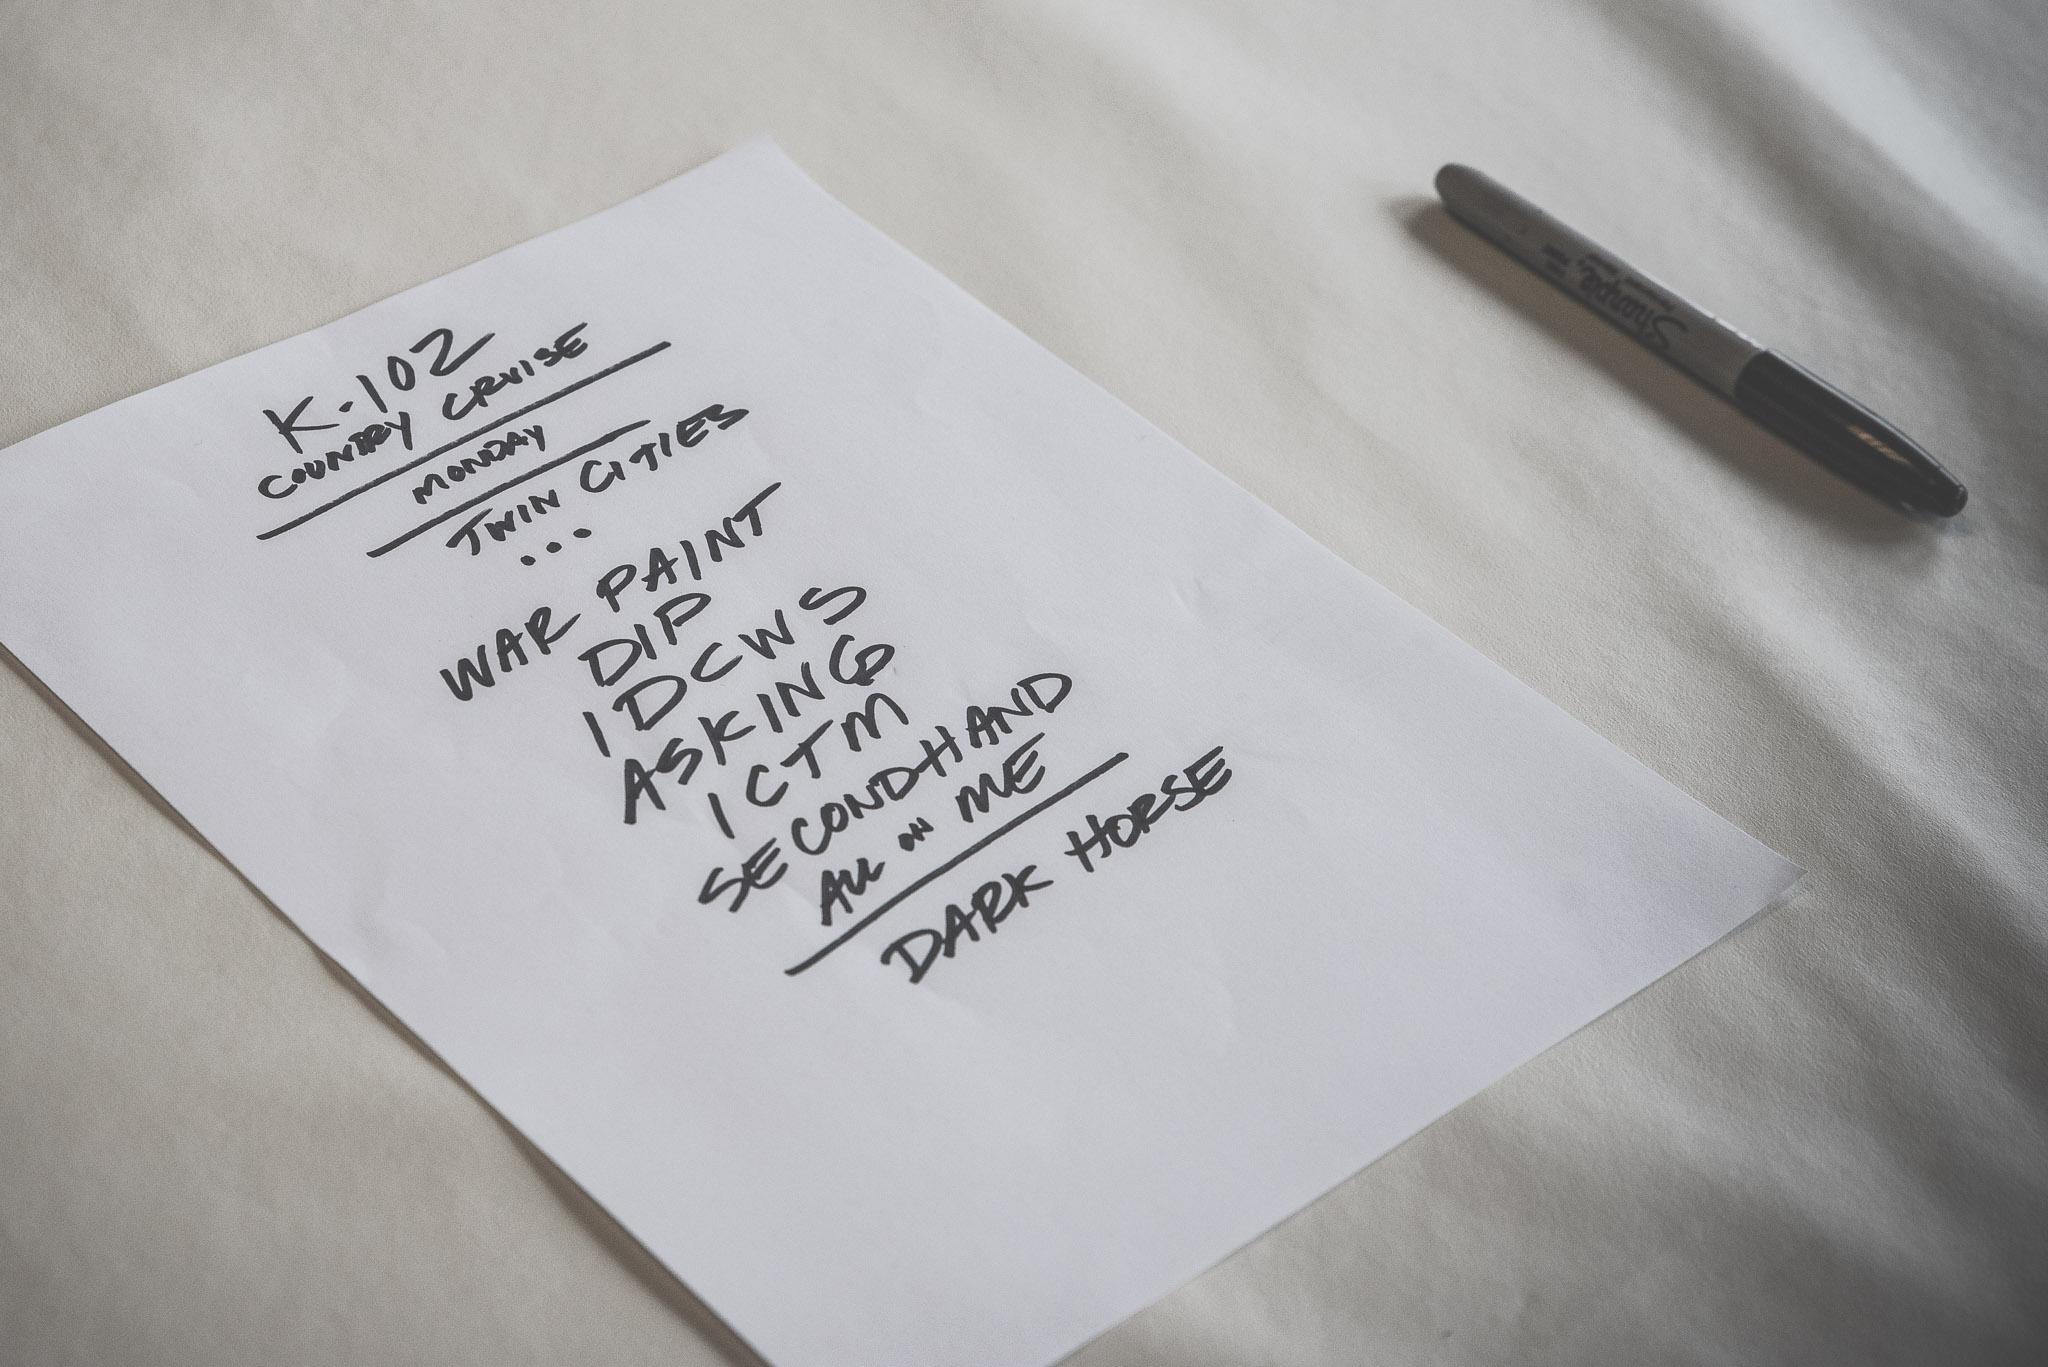 K-102
COUNTRY CRUISE
MONDAY
TWIN CITIES
...
WAR PAINT
DIP
IDCWS
ASKING
ICTM
SECONDHAND
ALL ON ME
DARK HORSE
Sharpie